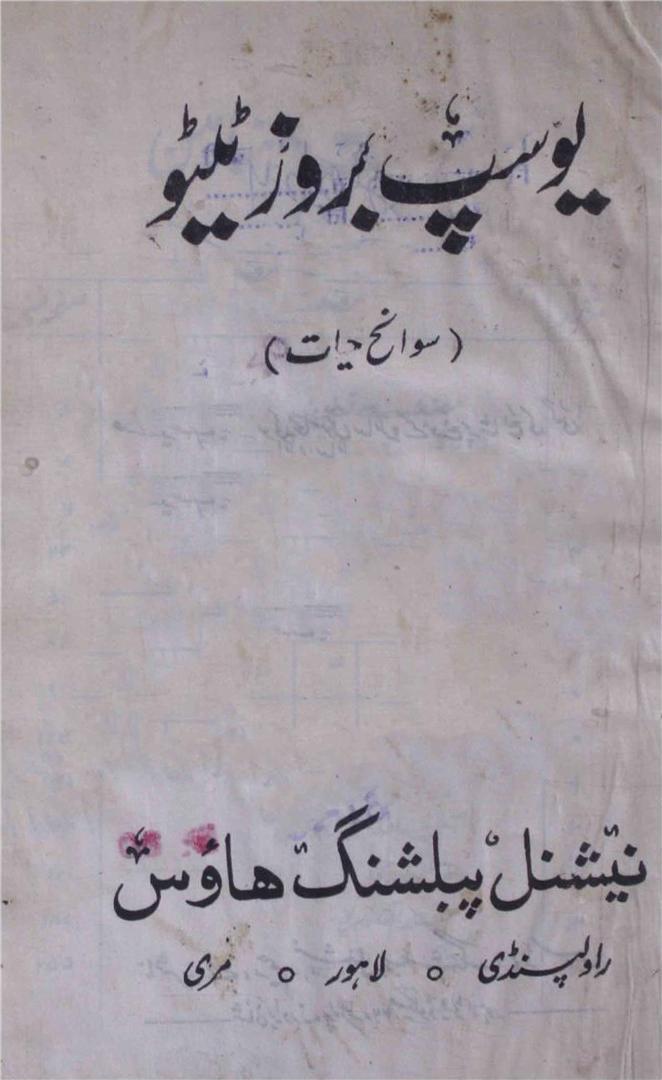 یوسپ بروز ٹیٹو
(سوانح حیات)
نیشنل پبلشنگ ہاؤس
راولپنڈی ○ لاہور ○ مری